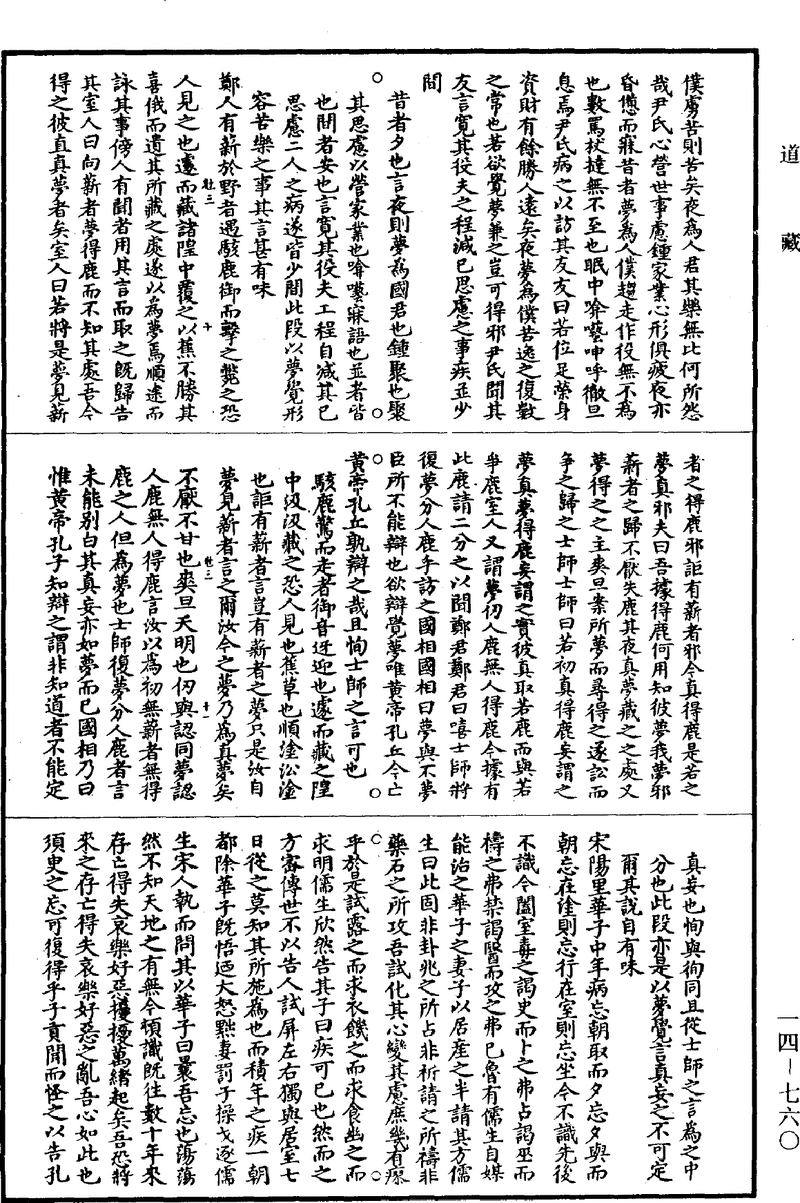 道藏
僕虜苦則苦矣夜為人君其樂無比何所怨
哉尹氏心營世事慮鍾家業心形俱疲夜亦
昏憊而寐昔者夢為人僕趨走作役無不為
也數罵杖撻無不至也眠中啽囈呻呼徹旦
息焉尹氏病之以訪其友友曰若位足榮身
資財有餘勝人遠矣夜夢為僕苦逸之復數
之常也若欲覺夢兼之豈可得邪尹氏聞其
友言寬其役夫之程減己思慮之事疾並少
間
昔者夕也言夜則夢為國君也鍾聚也聚
其思慮以營家業也啽囈寐語也並者皆
也間者安也言寬其役夫工程自減其己
思慮二人之病遂皆少間此段以夢覺形
容苦樂之事其言甚有味
鄭人有薪於野者遇駭鹿御而擊之斃之恐
人見之也遽而藏諸隍中覆之以蕉不勝其
喜俄而遺其所藏之處遂以為夢焉順途而
詠其事傍人有聞者用其言而取之既歸告
其室人曰向薪者夢得鹿而不知其處吾今
得之彼直真夢者矣室人曰若將是夢見薪
者之得鹿邪詎有薪者邪今真得鹿是若之
夢真邪夫曰吾據得鹿何用知彼夢我夢邪
薪者之歸不厭失鹿其夜真夢藏之之處又
夢得之之主爽旦案所夢而尋得之遂訟而
爭之歸之士師士師曰若初真得鹿妄謂之
夢真夢得鹿妄謂之實彼真取若鹿而與若
爭鹿室人又謂夢仞人鹿無人得鹿今據有
此鹿請二分之以聞鄭君鄭君曰嘻士師將
復夢分人鹿乎訪之國相國相曰夢與不夢
臣所不能辯也欲辯覺夢唯黃帝孔丘今亡
黃帝孔丘孰辯之哉且恂士師之言可也
駭鹿驚而走者御音迓迎也遽而藏之隍
中汲汲藏之恐人見也蕉草也順塗沿塗
也詎有薪者言豈有薪者之夢只是汝自
夢見薪者言之爾汝今之夢乃為真夢矣
不厭不甘也爽旦天明也仞與認同夢認
人鹿無人得鹿言汝以為初無薪者無得
鹿之人但為夢也士師復夢分人鹿者言
未能別白其真妄亦如夢而已國相乃曰
惟黃帝孔子知辯之謂非知道者不能定
真妄也恂與徇同且從士師之言為之中
分也此段亦是以夢覺言真妄之不可定
爾其說自有味
宋陽里華子中年病忘朝取而夕忘夕與而
朝忘在塗則忘行在室則忘坐今不識先後
不識今闔室毒之謁史而卜之弗占謁巫而
禱之弗禁謁醫而攻之弗已魯有儒生自媒
能治之華子之妻子以居產之半請其方儒
生曰此固非卦兆之所占非祈請之所禱非
藥石之所攻吾試化其心變其慮庶幾有瘳
乎於是試露之而求衣饑之而求食幽之而
求明儒生欣然告其子曰疾可已也然而之
方審傳世不以告人試屏左右獨與居室七
日從之莫知其所施為也而積年之疾一朝
都除華子既悟迺大怒黜妻罰子操戈逐儒
生宋人執而問其以華子曰曩吾忘也蕩蕩
然不知天地之有無今頓識既往數十年來
存亡得失哀樂好惡擾擾萬緒起矣吾恐將
來之存亡得失哀樂好惡之亂吾心如此也
須臾之忘可復得乎子貢聞而怪之以告孔
一四-七六〇